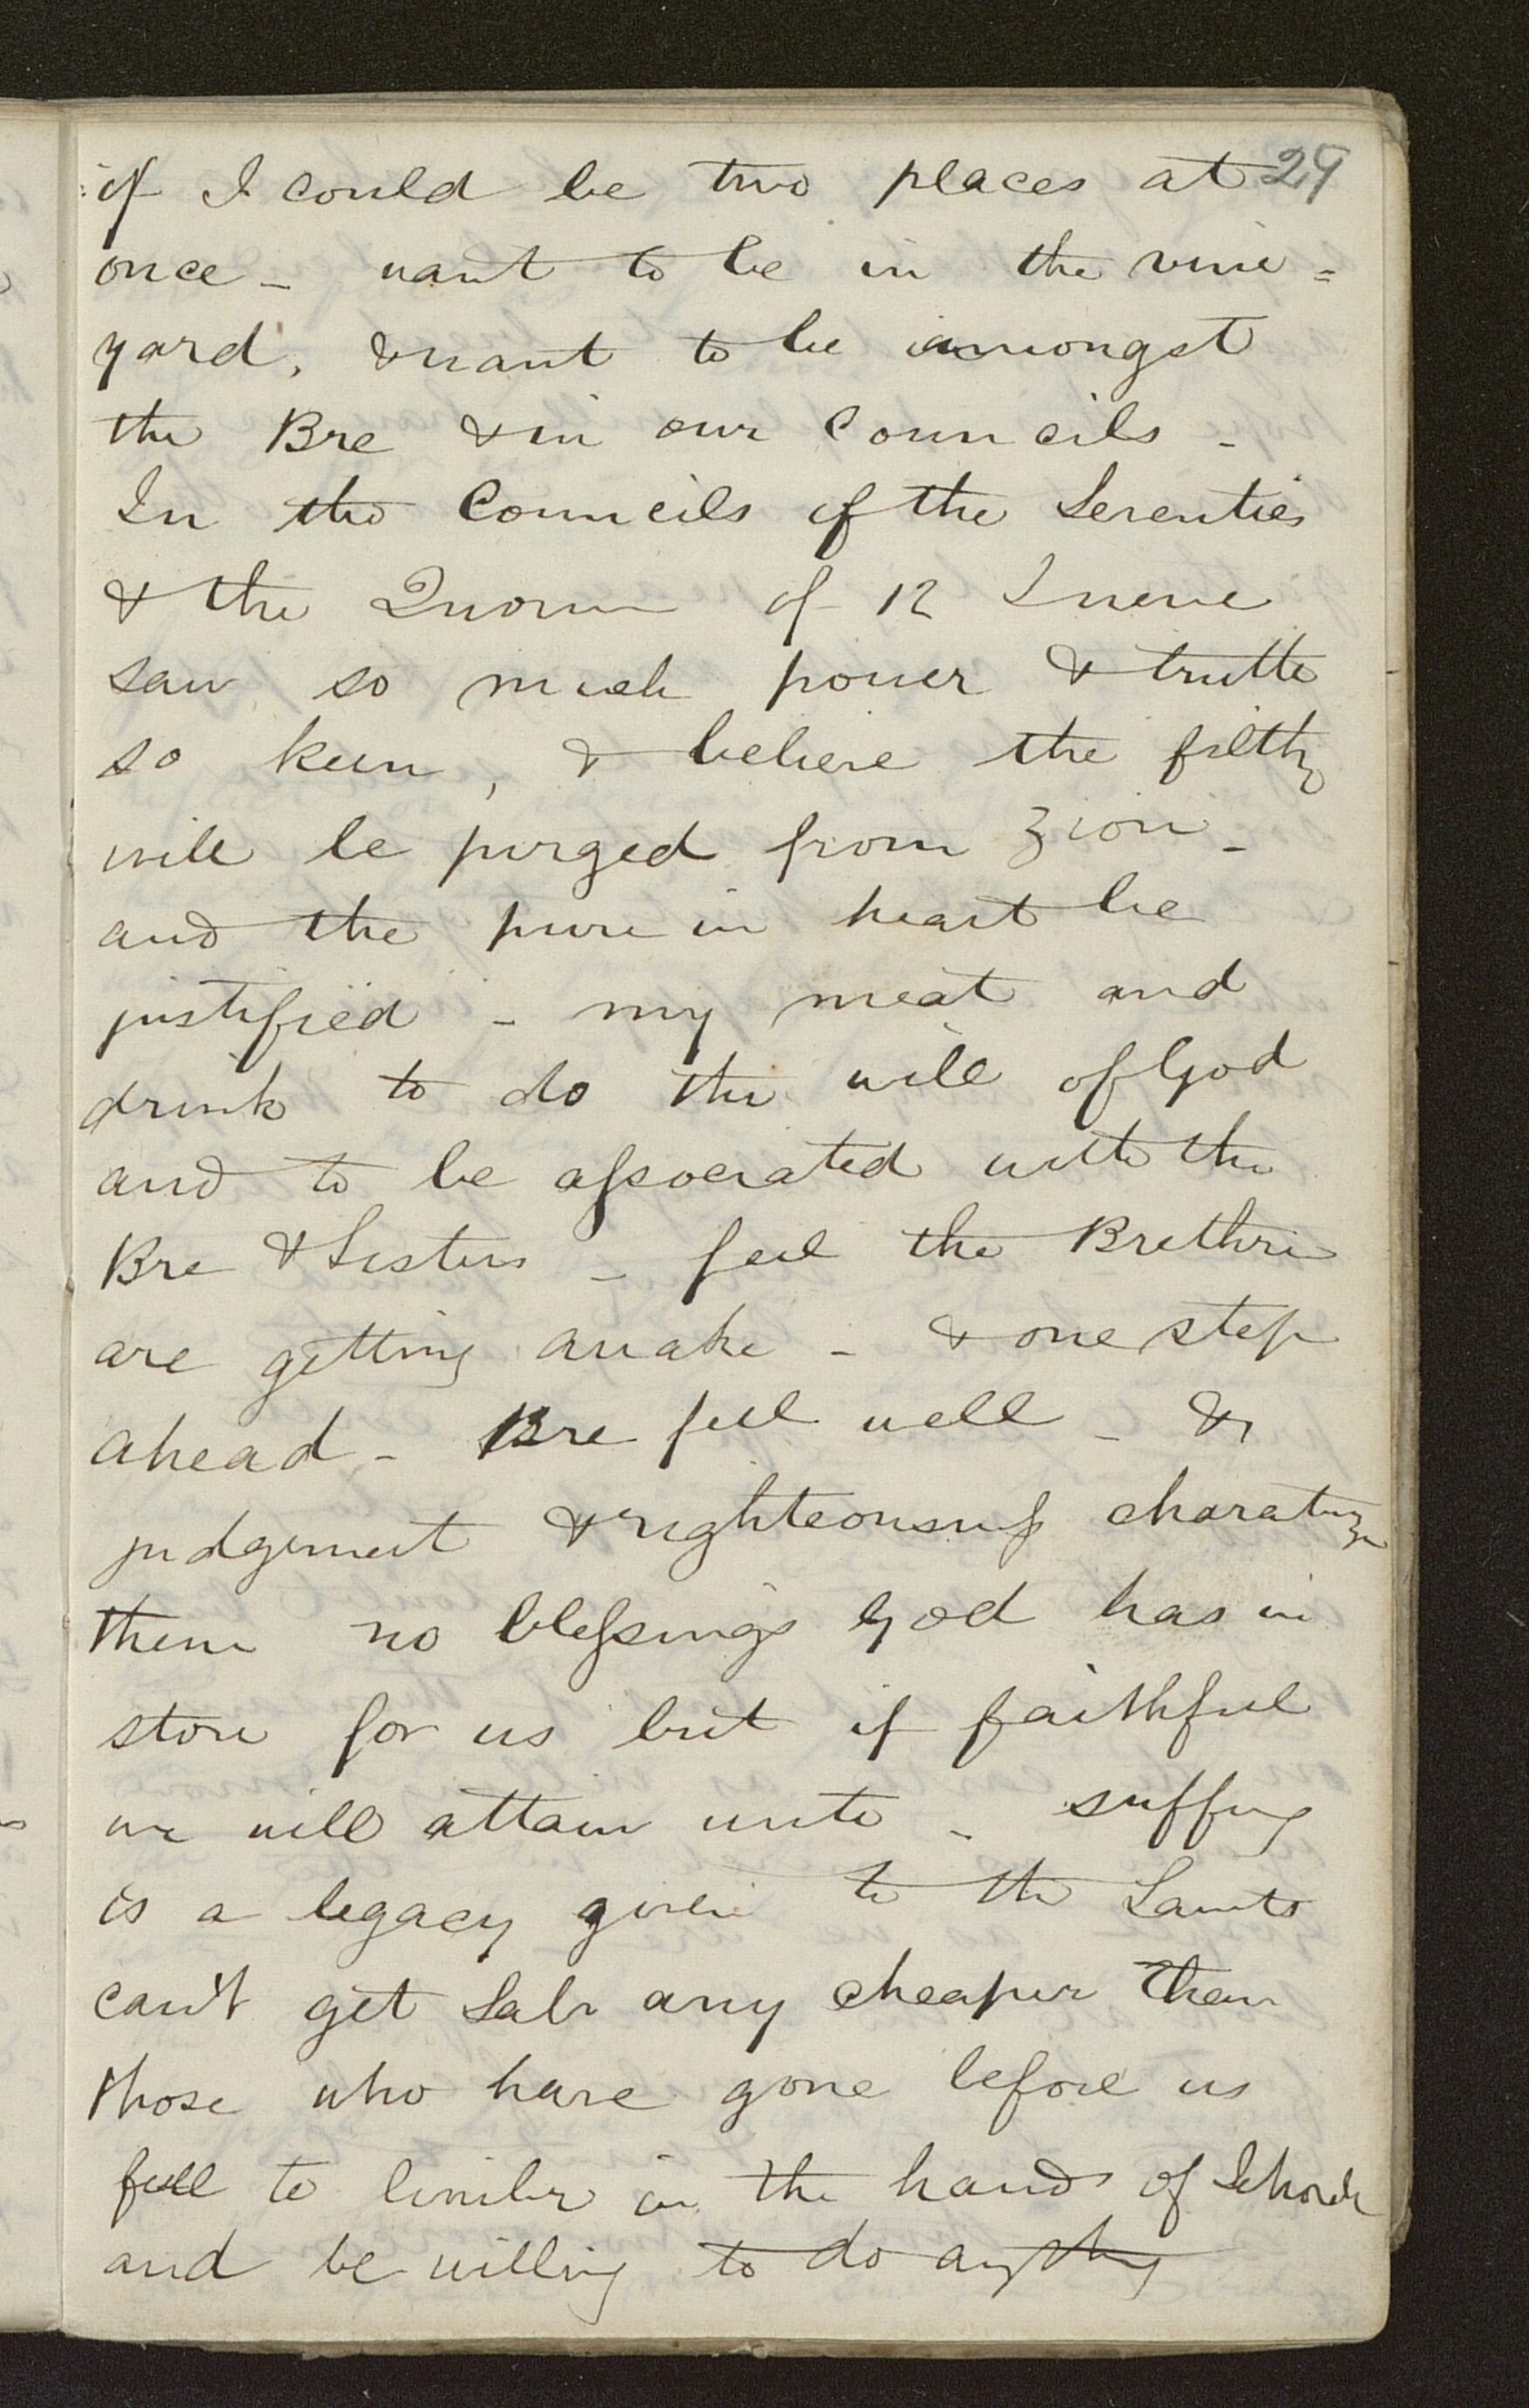 if I could be two places at 29
once - want to be in the vine=
yard, & want to be amongst
the Bre & in our Councils -
In the Councils of the Seventies
& the Quorum of 12 I never
saw so much power & truth
so keen, & believe the filthy
will be purged from Zion -
and the pure in heart be
justified - my meat and
drink to do the will of God
and to be associated with the
Bre & Sisters - feel the Brethrn
are getting awake - & one step
ahead - Bre feel well - &
judgement & righteousness
them no blessings God has in
store for us but if faithful
we will attain unto - suffering
is a legacy given to the Saints
can't get Salv any cheaper than
those who have gone before us
feel to limber in the hands of Jehovah
and be willing to do anything